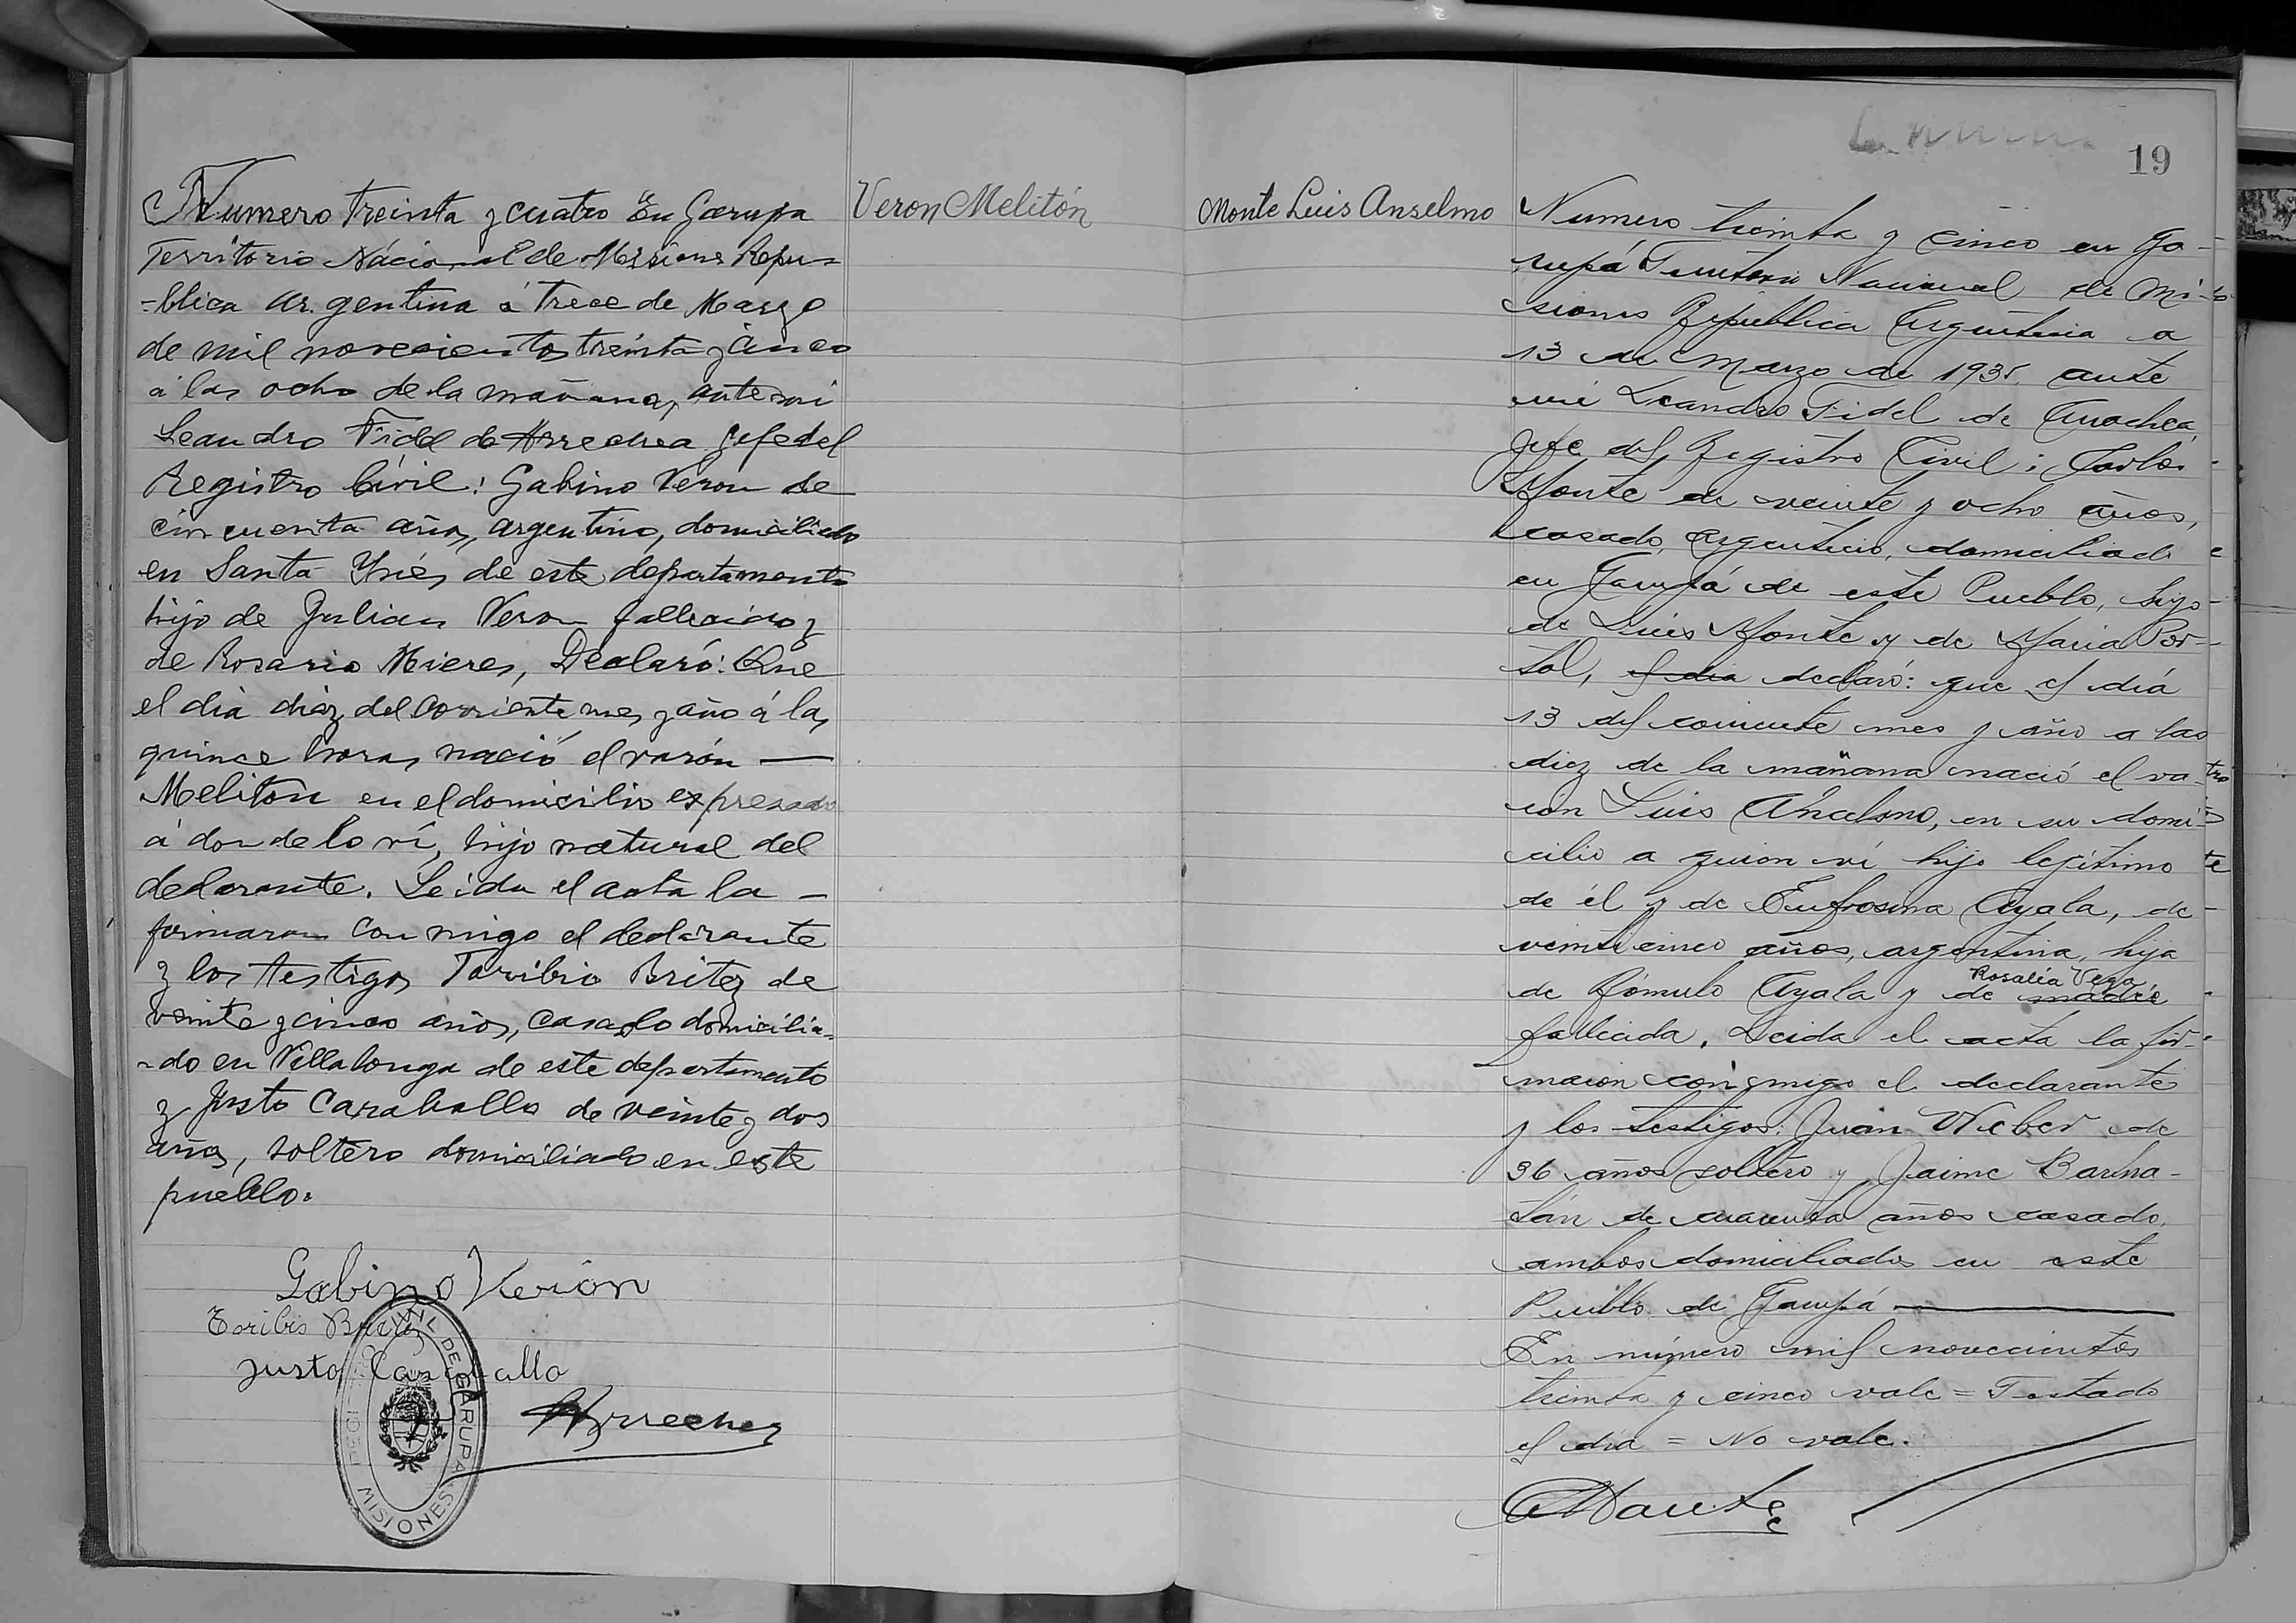 Numero treinta y cuatro En Garupa
Territorio Nacional de Misiones Repu=
=blica Ar.gentina á trece de Marzo
de mil novecientos treinta y cinco
á las ocho de la mañana, ante mi
Leandro Fidel de Arrechea Jefe del
Registro Civil: Gabino Veron de
cin cuenta años, argentino, domiciliado
en Santa Ynés de este departamento
hijo de Julian Veron fallecido y
de Rosario Mieres, Declaró: Que
el dia diez del corriente mes y año á las
quince horas nació el varón —
Meliton en el domicilio expresado
á donde lo ví, hijo natural del
declarante. Leida el acta la –
firmaron con migo el declarante
y los testigos Toribio Britez de
veinte y cinco años, casado domicilia=
=do en Villalonga de este departamento
y Justo Caraballo de veinte y dos
años, soltero domiciliado en este
pueblo.
Gabino Verón
Toribio Britez
Justo Caraballo
Arrechea
REGISTRO CIVIL DE GARUPA
MISIONES
Veron Melitón
Monte Luis Anselmo
19
Numero treinta y cinco en Ga-
rupá Territorio Nacional de Mi-
siones República Argentina a
13 de Marzo de 1935, ante
mi Leandro Fidel de Arrechea,
Jefe del Registro Civil: Carlos
Monte de veinte y ocho años,
casado, argentino, domiciliado
en Garupá de este Pueblo, hijo
de Luis Monte y de Maria Por-
tal, el dia declaró: que el día
13 del corriente mes y año a las
diez de la mañana nació el va-
ron Luis Anselmo, en su domi-
cilio a quien ví hijo legítimo
de él y de Eufrosina Ayala, de
veinticinco años, argentina, hija
de Rómulo Ayala y de madre Rosalía Vega,
fallecida. Leida el acta la fir-
maron con migo el declarante
y los testigos: Juan Weber de
36 años soltero y Jaime Barha-
tán de cuarenta años casado,
ambos domiciliados en este
Pueblo de Garupá
En número mil novecientos
treinta y cinco vale = Testado
el dia = No vale.
CMonte